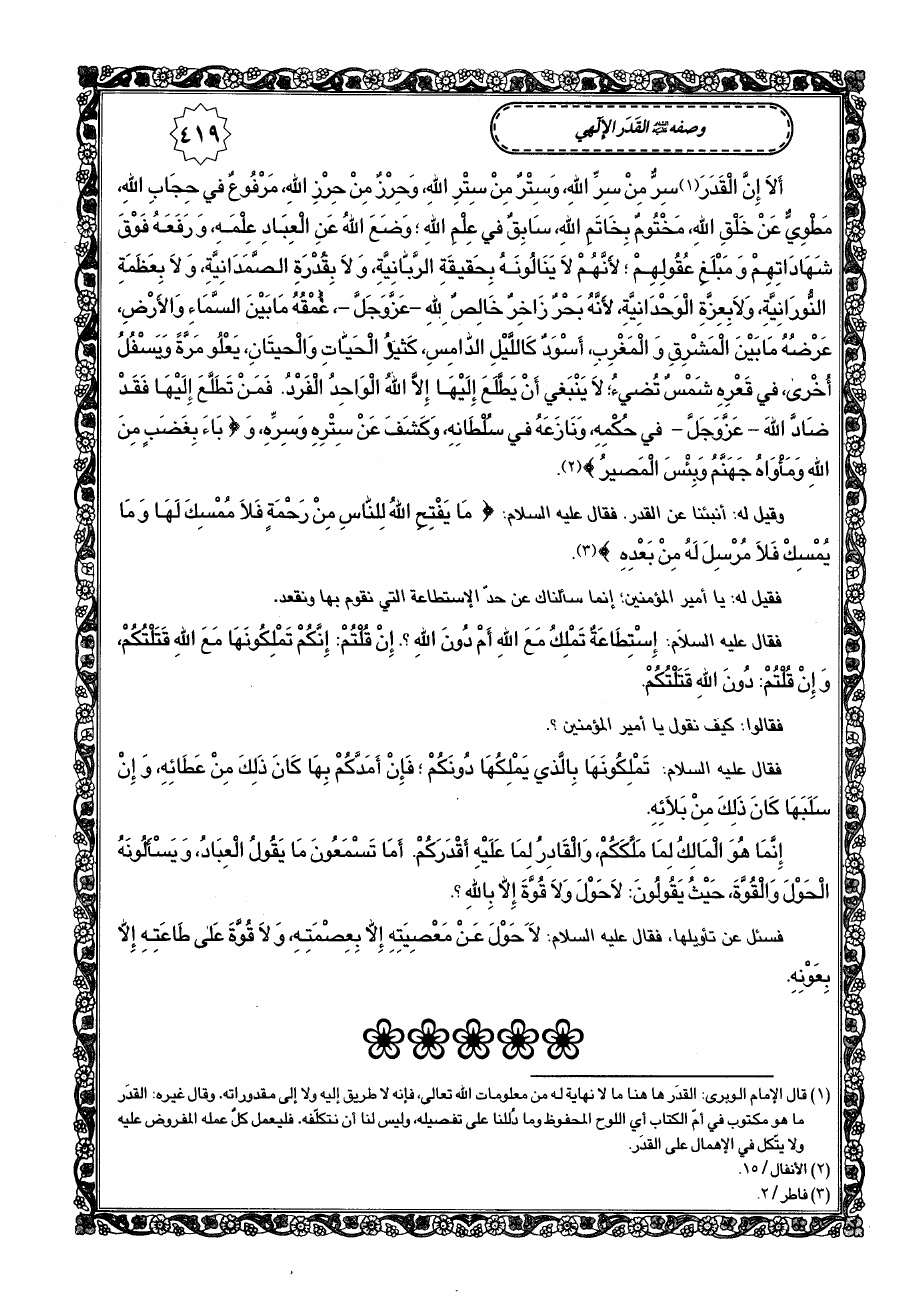 وصفه عليه السلام القَدَر الإلٓهي
٤١٩
أَلاَ إِنَّ الْقَدَرَ(١)سِرٌّ مِنْ سِرِّ اللهِ، وَسِتْرٌ مِنْ سِتْرِ اللهِ، وَحِرْزٌ مِنْ حِرْزِ اللهِ، مَرْفُوعٌ في حِجَابِ اللهِ،
مَطْوِيٌّ عَنْ خَلْقِ اللهِ، مَخْتُومٌ بِخَاتَمِ اللهِ، سَابِقٌ في عِلْمِ اللهِ ؛ وَضَعَ اللهُ عَنِ الْعِبَادِ عِلْمَهُ، وَ رَفَعَهُ فَوْقَ
شَهَادَاتِهِمْ وَ مَبْلَغِ عُقُولِهِمْ ؛ لأَنَّهُمْ لاَ يَنَالُونَهُ بِحَقيقَةِ الرَّبَّانِيَّةِ، وَ لاَ بِقُدْرَةِ الصَّمَدَانِيَّةِ، وَ لاَ بِعَظَمَةِ
النُّورَانِيَّةِ، وَلاَبِعِزَّةِ الْوَحْدَانِيَّةِ، لأَنَّهُ بَحْرٌ زَاخِرٌ خَالِصٌ لِلهِ –عَزَّوَجَلَّ–، عُمْقُهُ مَابَيْنَ السَّمَاءِ وَالأَرْضِ،
عَرْضُهُ مَابَيْنَ الْمَشْرِقِ وَ الْمَغْرِبِ، أَسْوَدُ كَاللَّيْلِ الدَّامِسِ، كَثيرُ الْحَيَّاتِ وَالْحيتَانِ، يَعْلُو مَرَّةً وَيَسْفُلُ
أُخْرىٰ، في قَعْرِهِ شَمْسٌ تُضيءُ؛ لاَ يَنْبَغي أَنْ يَطَّلَعَ إِلَيْهَا إِلاَّ اللهُ الْوَاحِدُ الْفَرْدُ. فَمَنْ تَطَلَّعَ إِلَيْهَا فَقَدْ
ضَادَّ اللهَ – عَزَّوَجَلَّ – في حُكْمِهِ، وَنَازَعَهُ في سُلْطَانِهِ، وَكَشَفَ عَنْ سِتْرِهِ وَسِرِّهِ، وَ ﴿ بَاءَ بِغَضَبٍ مِنَ
اللهِ وَمَأْوَاهُ جَهَنَّمُ وَبِئْسَ الْمَصيرُ ﴾(٢).
وقيل له: أنبئنا عن القدر. فقال عليه السلام: ﴿ مَا يَفْتَحِ اللهُ لِلنَّاسِ مِنْ رَحْمَةٍ فَلاَ مُمْسِكَ لَهَا وَ مَا
يُمْسِكْ فَلاَ مُرْسِلَ لَهُ مِنْ بَعْدِهِ ﴾(٣).
فقيل له: يا أمير المؤمنين؛ إنما سألناك عن حدّ الإستطاعة التي نقوم بها ونقعد.
فقال عليه السلام: إِسْتِطَاعَةٌ تَمْلِكُ مَعَ اللهِ أَمْ دُونَ اللهِ ؟. إِنْ قُلْتُمْ: إِنَّكُمْ تَمْلِكُونَهَا مَعَ اللهِ قَتَلْتُكُمْ،
وَ إِنْ قُلْتُمْ: دُونَ اللهِ قَتَلْتُكُمْ.
فقالوا: كيف نقول يا أمير المؤمنين ؟.
فقال عليه السلام: تَمْلِكُونَهَا بِالَّذي يَمْلِكُهَا دُونَكُمْ ؛ فَإِنْ أَمَدَّكُمْ بِهَا كَانَ ذَلِكَ مِنْ عَطَائِهِ، وَ إِنْ
سَلَبَهَا كَانَ ذَلِكَ مِنْ بَلاَئِهِ.
إِنَّمَا هُوَ الْمَالِكُ لِمَا مَلَّكَكُمْ، وَالْقَادِرُ لِمَا عَلَيْهِ أَقْدَرَكُمْ. أَمَا تَسْمَعُونَ مَا يَقُولُ الْعِبَادُ، وَ يَسْأَلُونَهُ
الْحَوْلَ وَالْقُوَّةَ، حَيْثُ يَقُولُونَ: لاَحَوْلَ وَلاَ قُوَّةَ إِلاَّ بِاللهِ ؟.
فسئل عن تأويلها، فقال عليه السلام: لاَ حَوْلَ عَنْ مَعْصِيَتِهِ إِلاَّ بِعِصْمَتِهِ، وَ لاَ قُوَّةَ عَلىٰ طَاعَتِهِ إِلاَّ
بِعَوْنِهِ.
(١) قال الإمام الوبرى: القدَر ها هنا ما لا نهاية له من معلومات الله تعالى، فإنه لا طريق إليه ولا إلى مقدوراته. وقال غيره: القدَر
ما هو مكتوب في أمّ الكتاب أي اللوح المحفوظ وما دُللنا على تفصيله، وليس لنا أن نتكلّفه. فليعمل كلٌ عمله المفروض عليه
ولا يتّكل في الإهمال على القدَر.
(٢) الأنفال / ١٥.
(٣) فاطر / ٢.